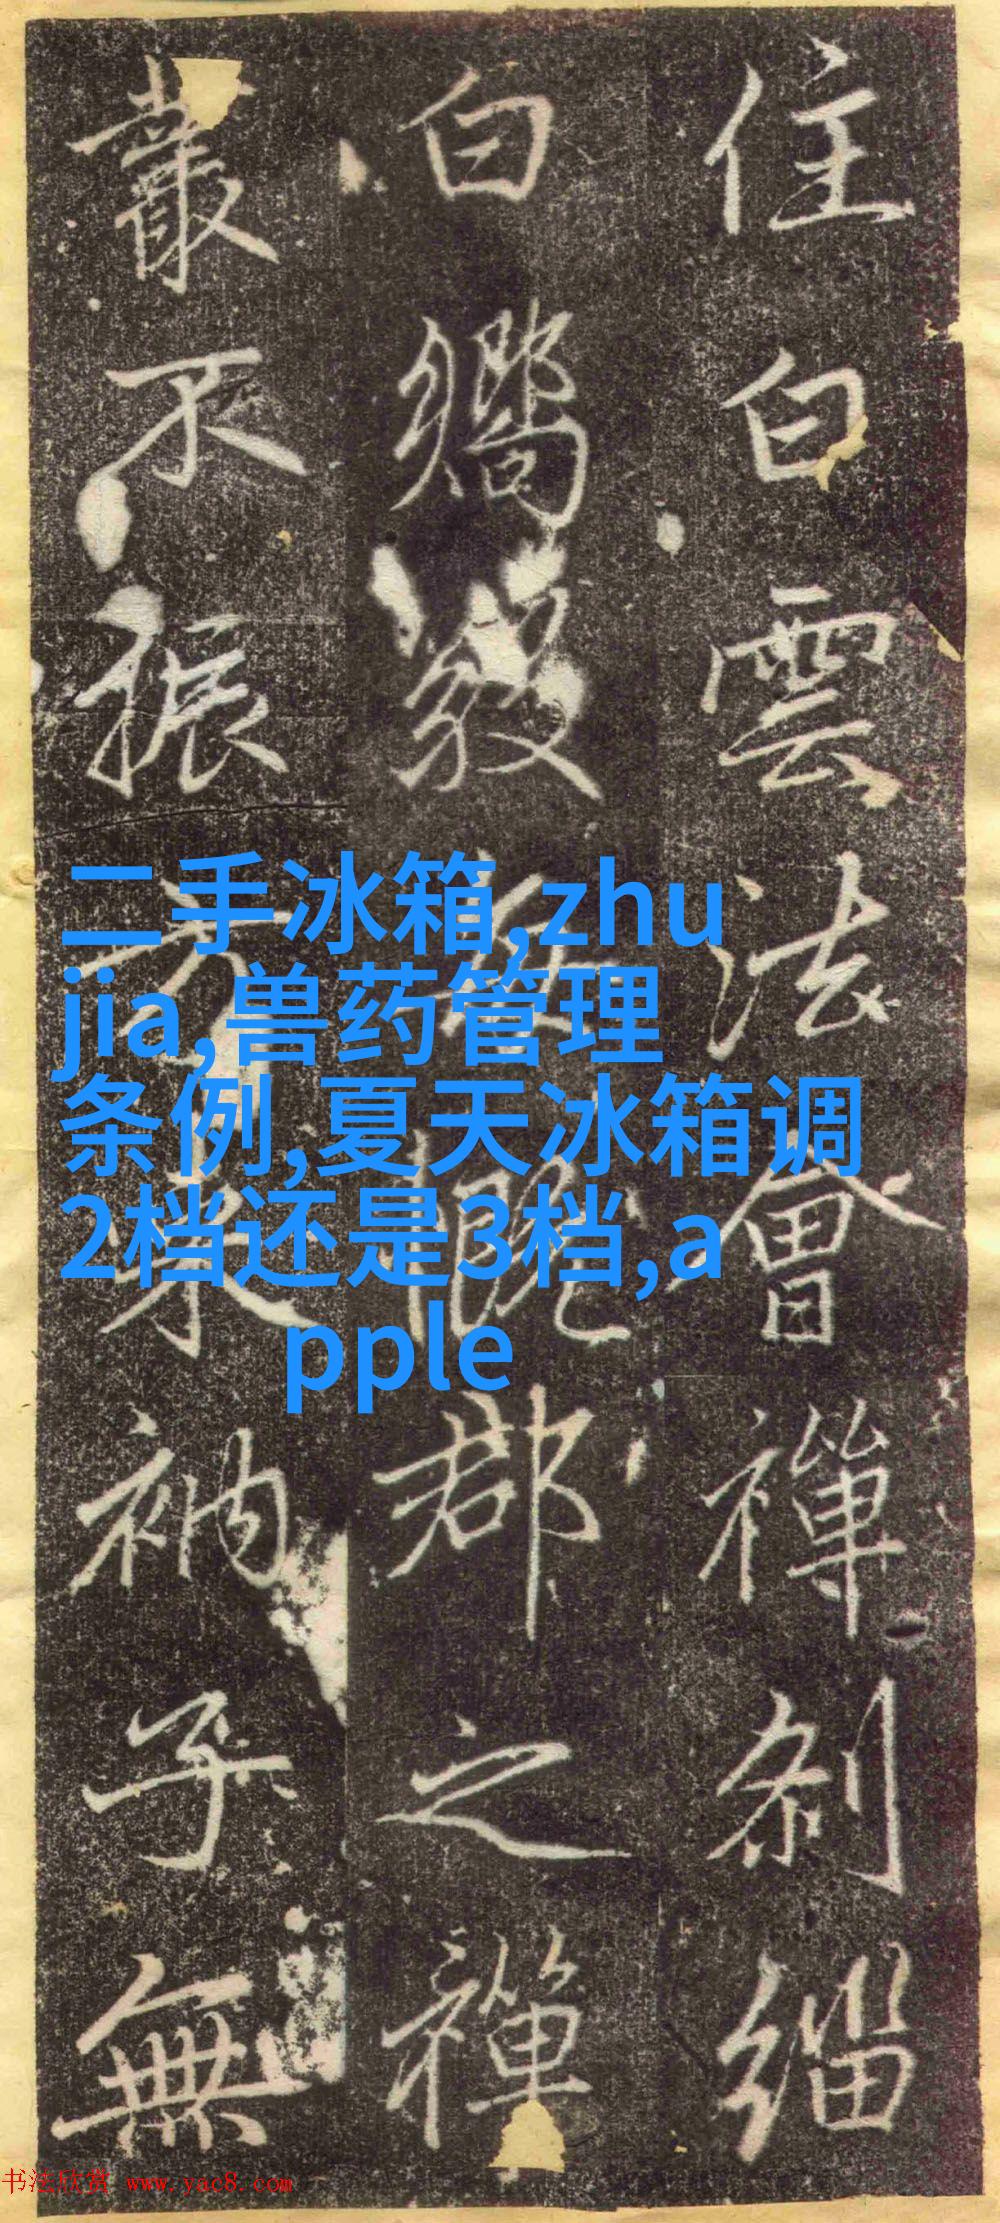 住白雲法會禪剎緇
白嚮慨郡之禪
叢不振方來衲子無
二手冰箱,zhu
jia,兽药管理
条例,夏天冰箱调
2档还是3档,a
pple
书法欣赏 www.yac8.com